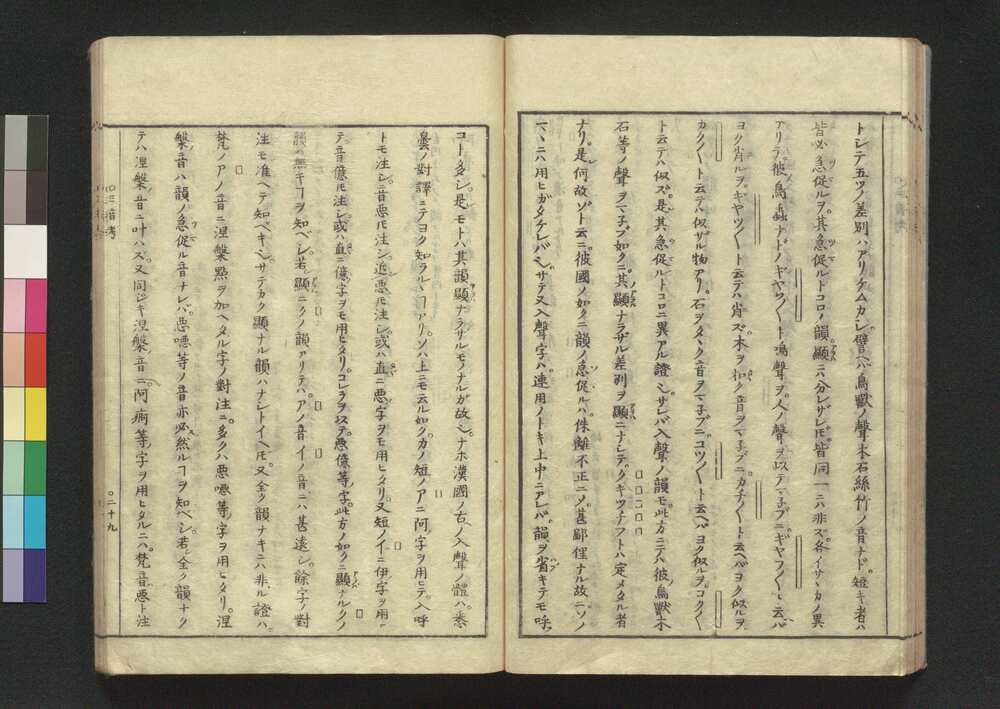 トシテ五ツノ差別ハアリケムカシ譬ヘバ鳥獸ノ聲木石絲竹ノ音ナド短キ者ハ
皆必急促ルヲ其急促ルトコロノ韻顯ニハ分レザレ𪜈皆同一ニハ非ズ各イサヽカノ異
アリテ彼鳥蟲ナドノギヤツ〱ト鳴聲ヲ人ノ聲ヲ以テマ子ブニギヤフ〱ト云バ
ヨク肖ルヲギヤツ〱ト云テハ肖ズ木ヲ扣ク音ヲマ子ブニカチ〱ト云ヘバヨク似ルヲ
カク〱ト云テハ似ザル物アリ石ヲタヽク音ヲマ子ブニコツ〱ト云ヘバヨク似ルヲコク〱
ト云テハ似ズ是其急促ルトコロニ異アル證ゾサレバ入聲ノ韻モ此方ニテハ彼鳥獸木
石等ノ聲ヲマ子ブ如クニ其顯ナラザル差別ヲ顯ニナシテクキツチフトハ定メタル者
ナリ是何故ゾト云ニ彼國ノ如クニ韻ノ急促ルハ侏離不正ニメ甚鄙俚ナル故ニソノ
マヽニハ用ヒガタケレバゾサテ又入聲字ハ連用ノトキ上中ニアレバ韻ヲ省キテモ呼
コト多シ是モトハ其韻顯ナラザルモノナルガ故ゾナホ漢國ノ古ノ入聲ノ體ハ悉
曇ノ對譯ニテヨク知ラルヽヿアリソハ上ニモ云ル如クカノ短ノアニ阿字ヲ用ヒテ入呼
トモ注シ音惡𪜈注シ近惡𪜈注シ或ハ直ニ惡字ヲモ用ヒタリ又短ノイニ伊字ヲ用ヒ
テ音億𪜈注シ或ハ直ニ億字ヲモ用ヒタリコレラヲ以テ惡億等ノ字此方ノ如クニ顯ナルクノ
韻ハ無キヿヲ知ベシ若顯ニクノ韻アリテハアノ音イノ音ニハ甚遠シ餘ノ字ノ對
注モ准ヘテ知ベキゾサテカク顯ナル韻ハナシトイヘ𪜈又全ク韻ナキニハ非ル證ハ
梵ノアノ音ニ涅槃點ヲ加ヘタル字ノ對注ニ多クハ惡嗯等ノ字ヲ用ヒタリ涅
槃音ハ韻ノ急促ル音ナレバ惡嗯等ノ音亦必然ルヿヲ知ベシ若シ全ク韻ナク
テハ涅槃音ニ叶ハズ又同ジキ涅槃音ニ阿痾等ノ字ヲ用ヒタルニハ梵音惡ト注
〇二十九